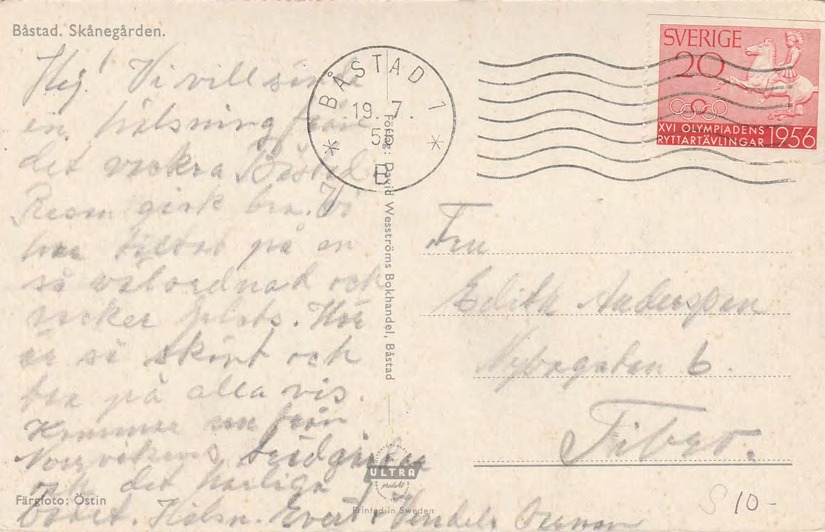 Båstad. Skånegården.
Hej! Vi vill sända
en hälsning från
det vackra Båstad.
Resan gick bra. Vi
har tältat på en
så välordnad och
vacker plats. Här
är så skönt och
bra på alla vis.
Kommer nu från
Norrvikens trädgårdar
och det härliga
Färgfoto: Östin
Hälsn. Evert
BÅSTAD 1
19. 7.
SVERIGE
20
XVI OLYMPIADENS
RYTTARTÄVLINGAR 1956
Förlag: David Wesströms Bokhandel, Båstad
Fru
Edith Andersson
6.
Tibro.
ULTRA
produkt
Printed in Sweden
10-